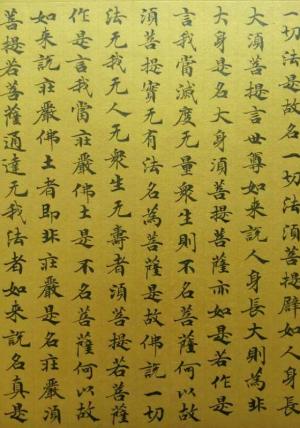 一切法是故名一切法須菩提辟如人身長
大須菩提言世尊如来說人身長大則為非
大身是名大身須菩提菩薩亦如是若作是
言我當滅度无量衆生則不名菩薩何以故
須菩提實无有法名為菩薩是故佛說一切
法无我无人无衆生无壽者須菩提若菩薩
作是言我當莊嚴佛土是不名菩薩何以故
如来說莊嚴佛土者即非莊嚴是名莊嚴須
菩提若菩薩通達无我法者如来說名真是